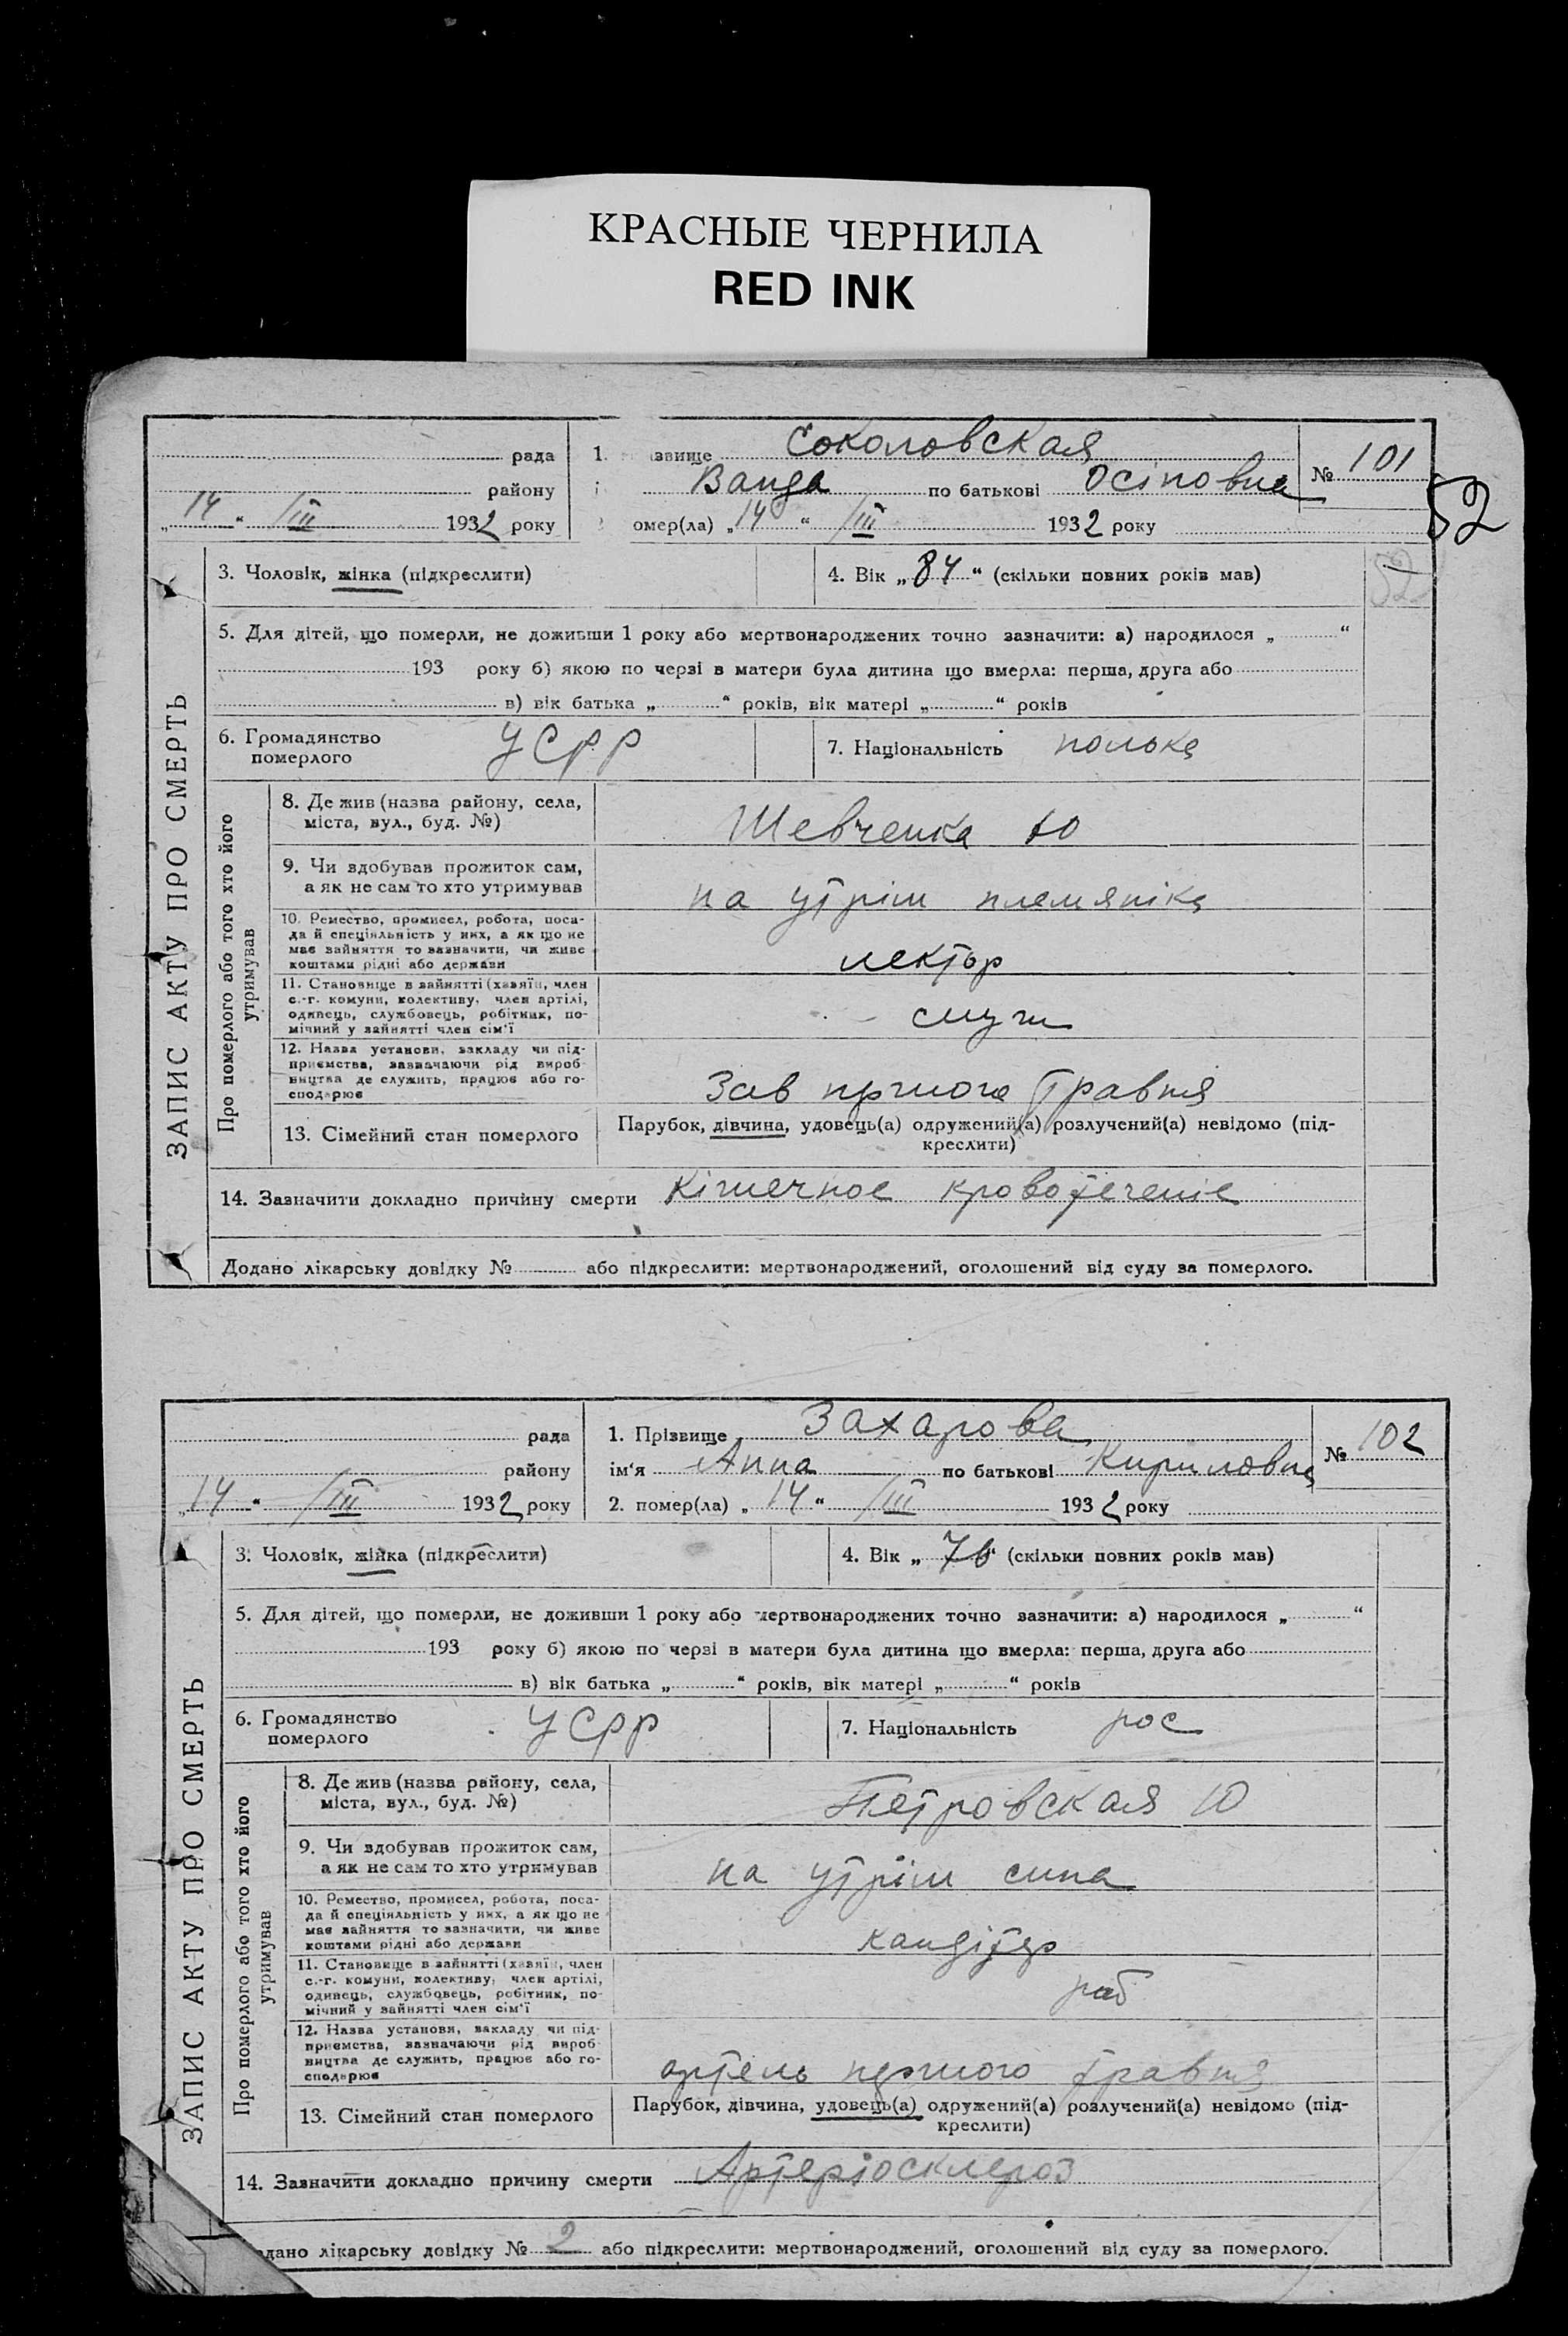 КРАСНЫЕ ЧЕРНИЛА
RED INK
рада
району
„ 14 “ /III 1932 року
1. звище Соколовская
Ванда по батькові Осіповна
№ 101
52
омер(ла) „ 14 “ /III 1932 року
3. Чоловік, жінка (підкреслити)
4. Вік „ 84 “ (скільки повних років мав)
52
5. Для дітей, що померли, не доживши 1 року або мертвонароджених точно зазначити: а) народилося „ “
193 року б) якою по черзі в матери була дитина що вмерла: перша, друга або
в) вік батька „ “ років, вік матері „ “ років
6. Громадянство
померлого
УСРР
7. Національність полька
ЗАПИС АКТУ ПРО СМЕРТЬ
Про померлого або того хто його
утримував
8. Де жив (назва району, села,
міста, вул., буд. №)
Шевченка 10
9. Чи здобував прожиток сам,
а як не сам то хто утримував
на утрім племяніка
10. Ремество, промисел, робота, поса-
да й спеціяльність у них, а як що не
має зайняття то зазначити, чи живе
коштами рідні або держави
лектор
11. Становище в зайнятті (хазяїн, член
с.-г. комуни, колективу, член артілі,
одинець, службовець, робітник, по-
мічний у зайнятті член сім'ї
служ
12. Назва установи, закладу чи під-
приємства, зазначаючи рід вироб-
ництва де служить, працює або го-
сподарює
Зав першого травня
13. Сімейний стан померлого
Парубок, дівчина, удовець(а) одружений(а) розлучений(а) невідомо (під-
креслити)
14. Зазначити докладно причину смерти Кішечное кровотеченіе
Додано лікарську довідку № або підкреслити: мертвонароджений, оголошений від суду за померлого.
рада
району
„ 14 “ /III 1932 року
1. Прізвище Захарова
ім'я Анна по батькові Кириловна
№ 102
2. помер(ла) „ 14 “ /III 1932 року
3. Чоловік, жінка (підкреслити)
4. Вік „ 76 “ (скільки повних років мав)
5. Для дітей, що померли, не доживши 1 року або мертвонароджених точно зазначити: а) народилося „ “
193 року б) якою по черзі в матери була дитина що вмерла: перша, друга або
в) вік батька „ “ років, вік матері „ “ років
6. Громадянство
померлого
УСРР
7. Національність рос
ЗАПИС АКТУ ПРО СМЕРТЬ
Про померлого або того хто його
утримував
8. Де жив (назва району, села,
міста, вул., буд. №)
Петровская 10
9. Чи здобував прожиток сам,
а як не сам то хто утримував
на утрім сина
10. Ремество, промисел, робота, поса-
да й спеціяльність у них, а як що не
має зайняття то зазначити, чи живе
коштами рідні або держави
кандітер
11. Становище в зайнятті (хазяїн, член
с.-г. комуни, колективу, член артілі,
одинець, службовець, робітник, по-
мічний у зайнятті член сім'ї
роб
12. Назва установи, закладу чи під-
приємства, зазначаючи рід вироб-
ництва де служить, працює або го-
сподарює
артель першого травня
13. Сімейний стан померлого
Парубок, дівчина, удовець(а) одружений(а) розлучений(а) невідомо (під-
креслити)
14. Зазначити докладно причину смерти Артеріосклероз
дано лікарську довідку № 2 або підкреслити: мертвонароджений, оголошений від суду за померлого.